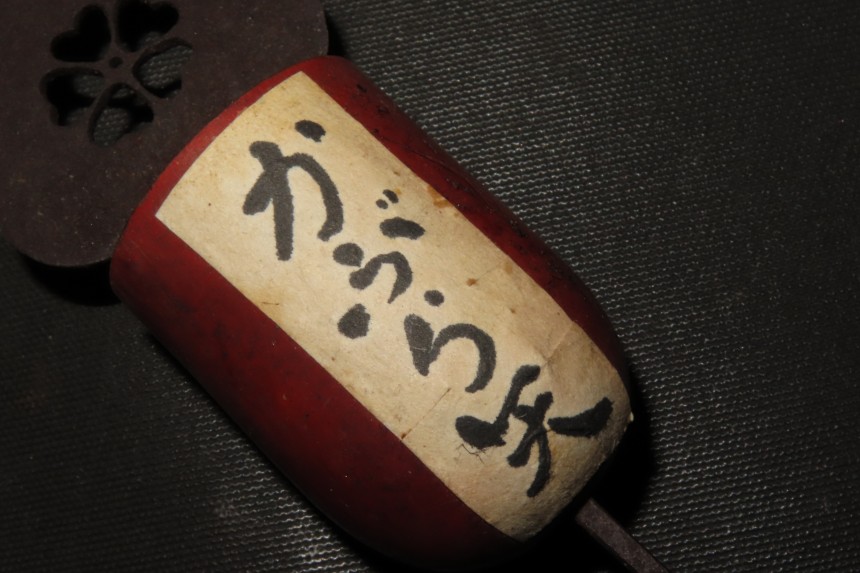 かぶら矢